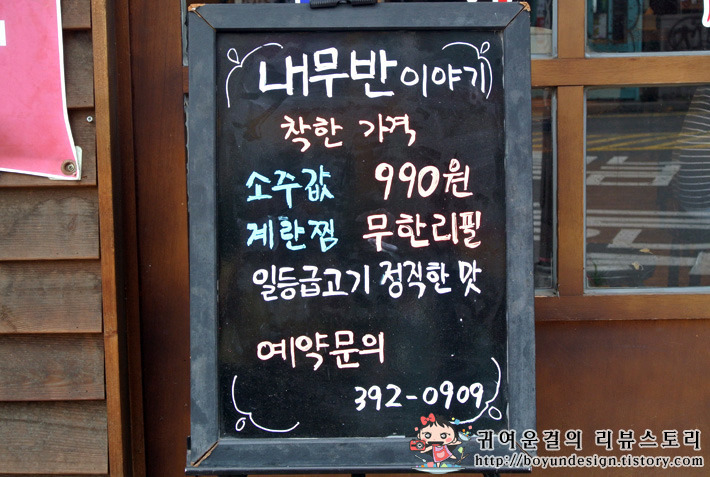 내무반이야기
착한 가격
소주값 990원
계란찜 무한리필
일등급고기 정직한 맛
예약문의
392-0909
귀여운걸의 리뷰스토리
http://boyundesign.tistory.com